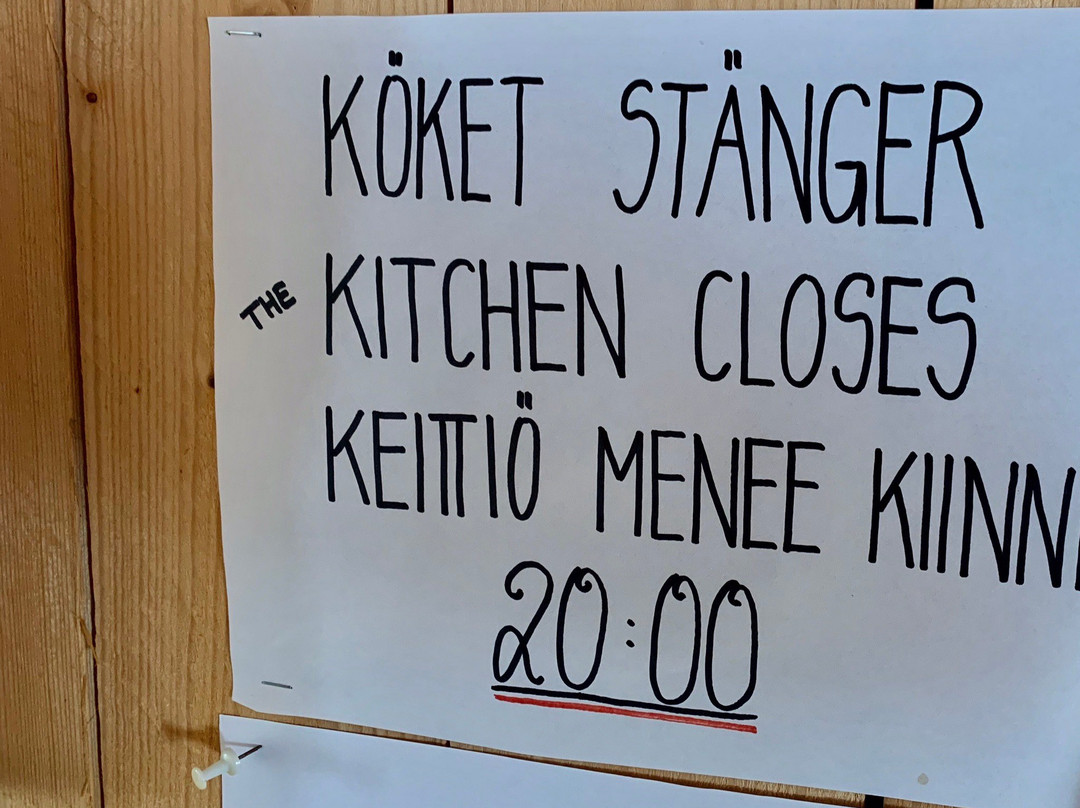 KÖKET STÄNGER
THE KITCHEN CLOSES
KEITTIÖ MENEE KIINN
20:00